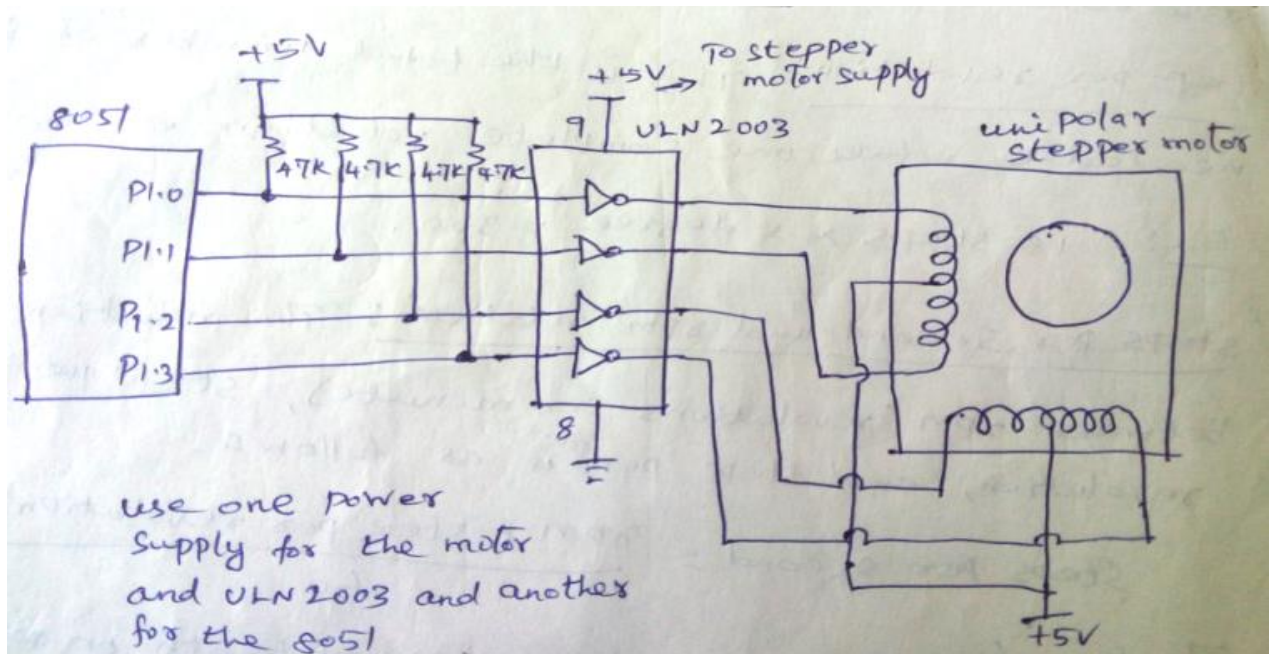 +5V
To stepper
+5V → motor supply
8051
9 ULN 2003
unipolar
stepper motor
4.7K 4.7K 4.7K 4.7K
P1.0
P1.1
P1.2
P1.3
8
use one power
supply for the motor
and ULN2003 and another
for the 8051
+5V